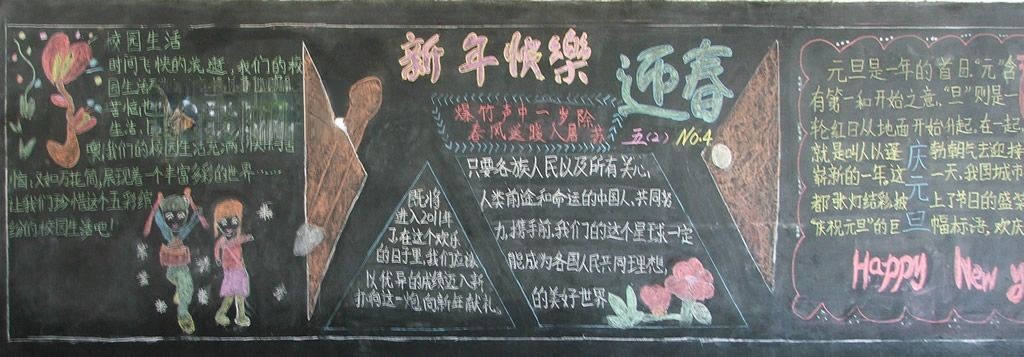 校园生活
时间飞快的流逝,我们的校
园生活
苦恼也
生活,
噢,我们的校园生活充满
恼,又如万花筒,展现着一个丰富多彩的世界……
让我们珍惜这个五彩缤
纷们校园生活吧!
新年快樂
迎春
爆竹声中一岁除
春风送暖入屠苏
五(2) No.4
既将
进入2011年
了在这个欢乐
的日子里,我们应该
以优异的成绩迈入新
打响这一炮,向新年献礼。
只要各族人民以及所有关心
人类前途和命运的中国人,共同努
力,携手前,我们的这个星球一定
能成为各国人民共同理想,
的美好世界
元旦是一年的首日."元"含
有第一和开始之意,"旦"则是一
轮红日从地面开始升起,在一起,
就是叫人以蓬 勃朝气去迎接
崭新的一年.这 一天,我国城市
都张灯结彩,披 上了节日的盛装
"庆祝元旦"的巨 幅标语,欢庆
庆元旦
Happy New y